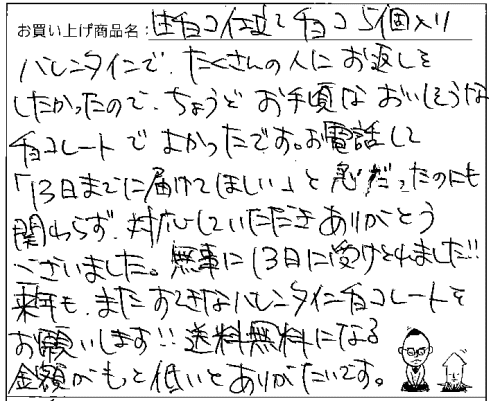 お買い上げ商品名：生チョコ仕立てチョコ5個入り
バレンタインで、たくさんの人にお返しを
したかったので、ちょうどお手頃なおいしそうな
チョコレートでよかったです。お電話して
「13日までに届けてほしい」と急だったのにも
関わらず対応していただきありがとう
ございました。無事に13日に受けとれました!!
来年も、またすてきなバレンタインチョコレートを
お願いします!! 送料無料になる
金額がもっと低いとありがたいです。